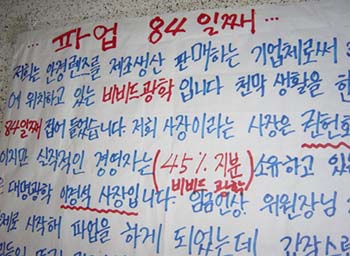 ... 파업 84일째 ...
저희는 안경렌즈를 제조생산 판매하는 기업체로써
에 위치하고 있는 비비드광학입니다 천막 생활을 한
84일째 접어 들었습니다. 저희 사장이라는 사장은 권헌호
이지만 실질적인 경영자는 (45% 지분) 소유하고 있
비비드 광학
대명광학 이경석 사장입니다. 임금인상 위원장님
시작해 파업을 하게 되었는데 갑작스